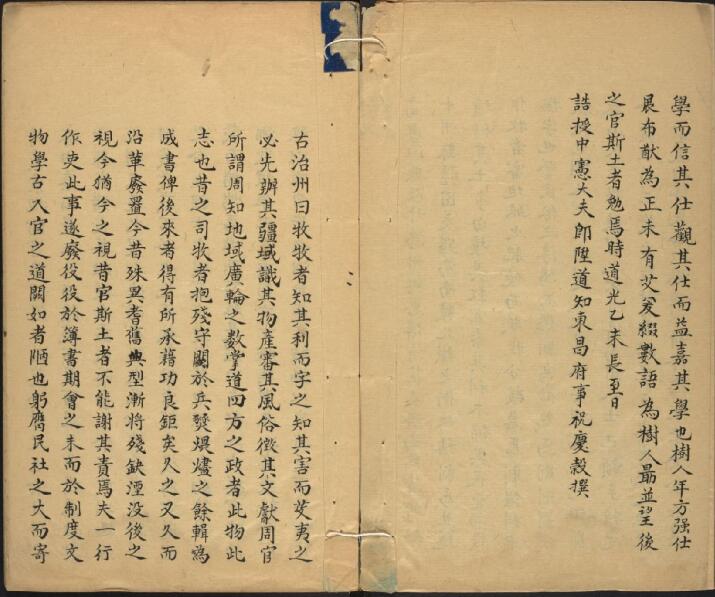 學而信其仕觀其仕而益嘉其學也樹人年方强仕
展布猷為正未有艾爰綴數語為樹人勗並望後
之官斯土者勉焉時道光乙未長至日
誥授中憲大夫即陞道知東昌府事祝慶穀撰
古治州曰牧牧者知其利而字之知其害而芟夷之
必先辦其疆域識其物產審其風俗徵其文獻周官
所謂周知地域廣輪之數掌道四方之政者此物此
志也昔之司牧者抱殘守闕於兵燹煨燼之餘輯為
成書俾後來者得有所承藉功良鉅矣久之又久而
沿革廢置今昔殊異耆舊典型漸將殘缺湮没後之
視今猶今之視昔官斯土者不能謝其責焉夫一行
作吏此事遂廢役役於簿書期會之末而於制度文
物學古入官之道闕如者陋也躬膺民社之大而寄